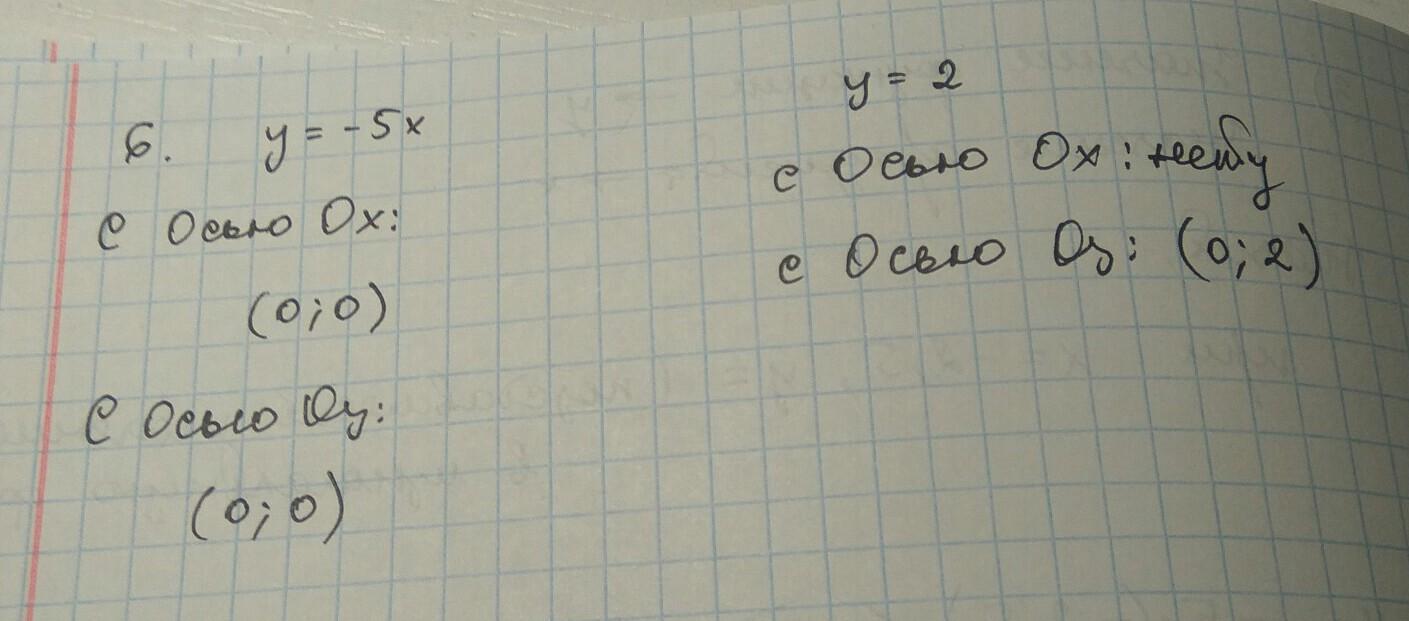 6. y = -5x
С Осью Ox:
(0; 0)
С Осью Oy:
(0; 0)
y = 2
с Осью Ox:
с Осью Oy: (0; 2)